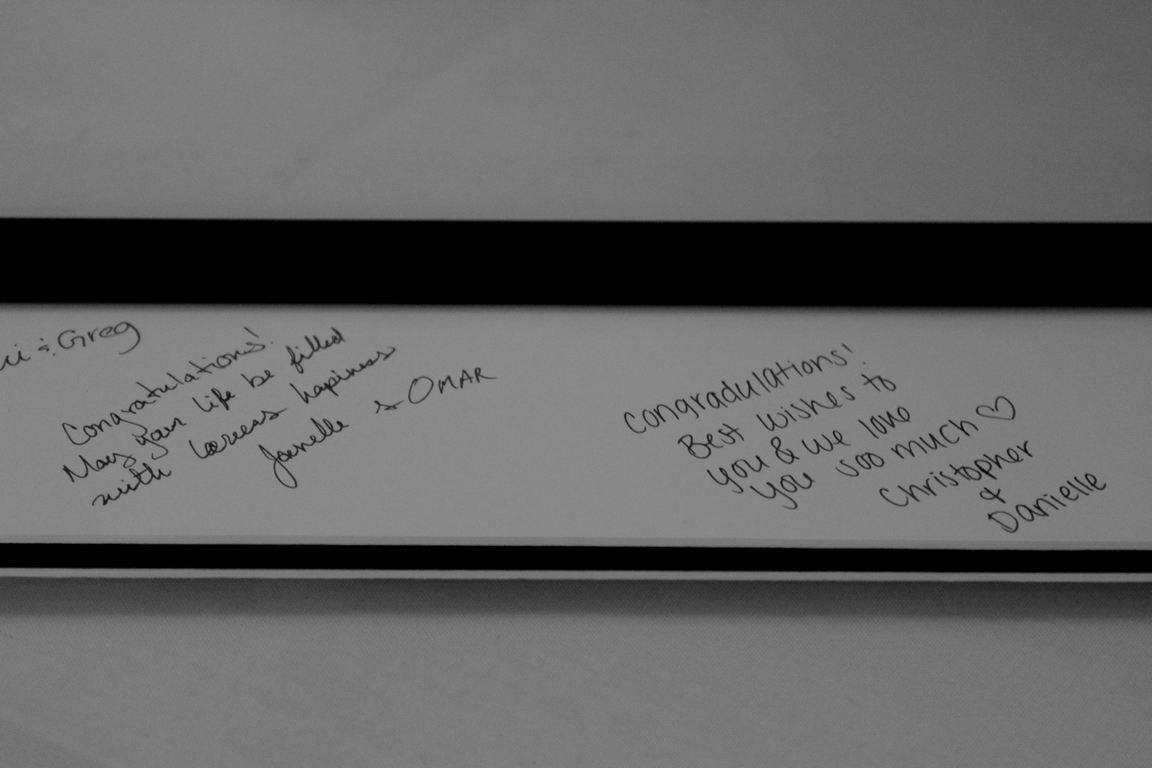 & Greg
Congratulations!
May your life be filled
with happiness
Janelle & OMAR
Congradulations!
Best wishes to
you & we love
you soo much ♡
Christopher
&
Danielle